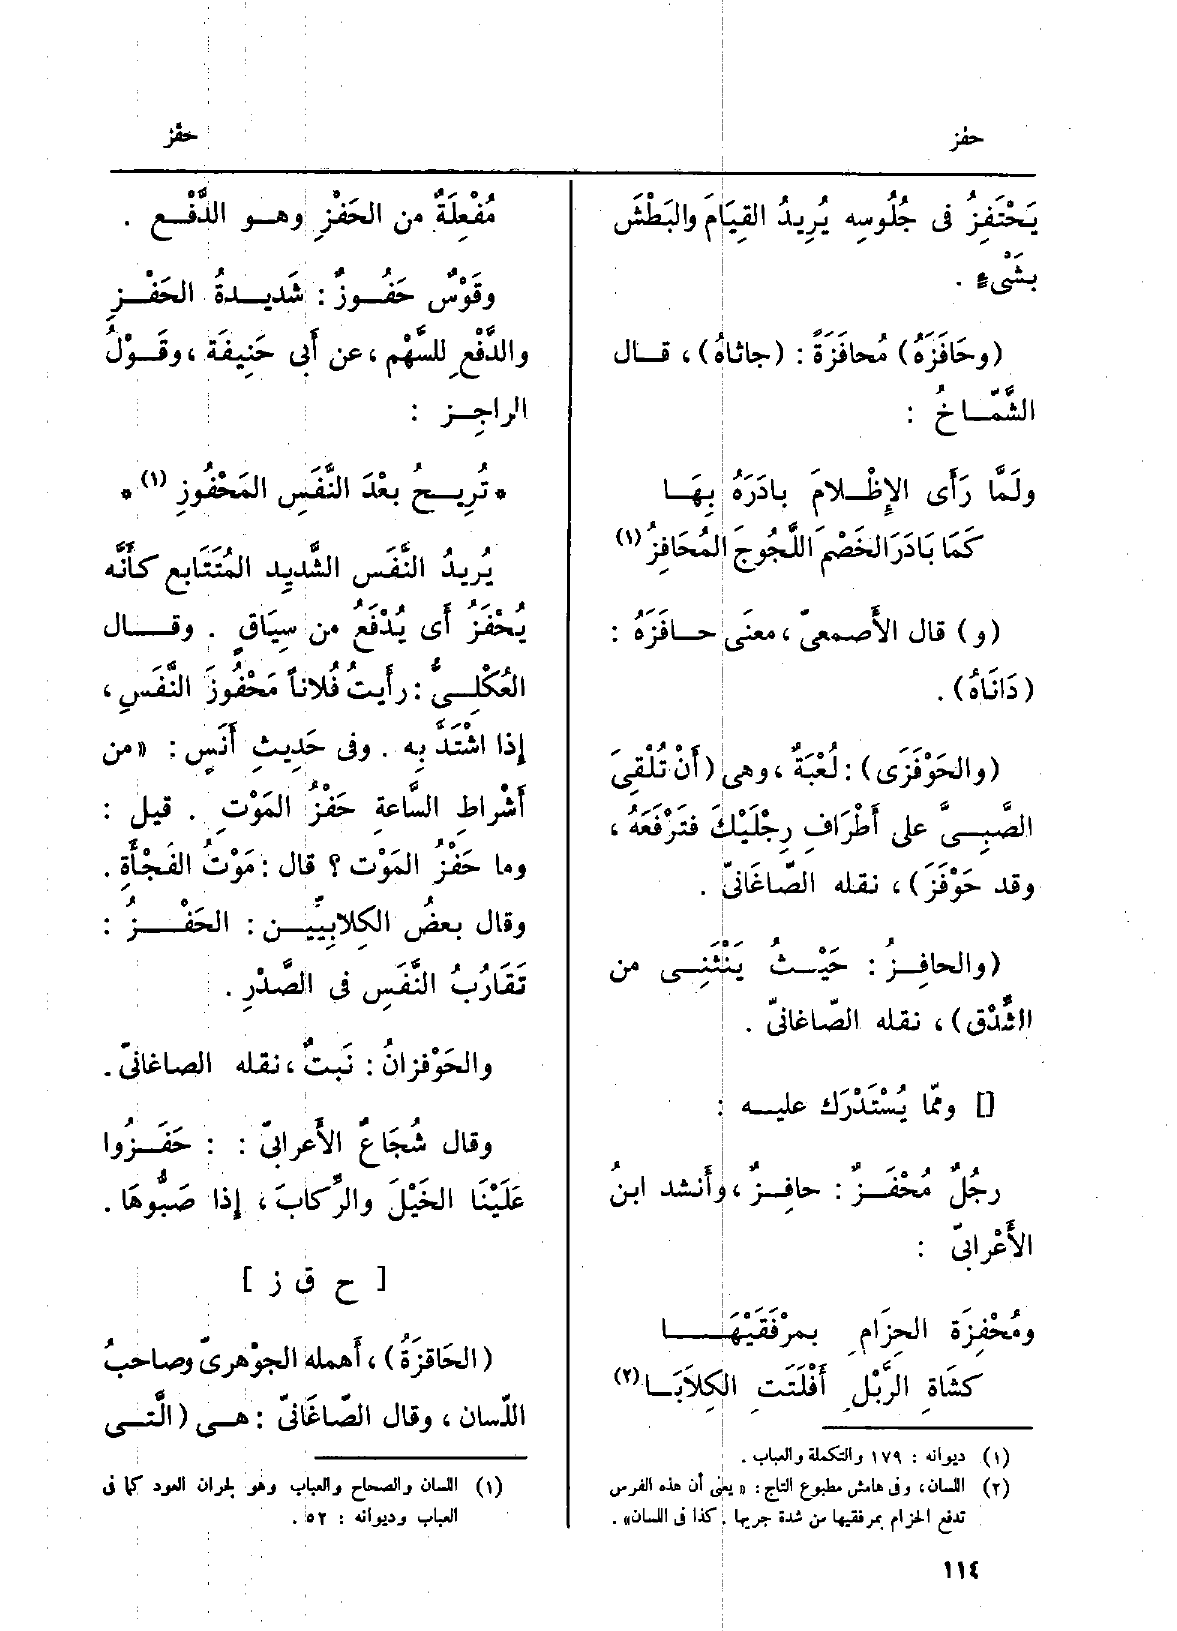 حفز
حقز
يَحْتَفِزُ فى جُلُوسِه يُرِيدُ القِيَامَ والبَطْشَ
بشَىْءٍ .
(وحَافَزَهُ) مُحافَزَةً : (جاثاهُ) ، قــال
الشَّمَّــاخُ :
ولَمَّا رَأَى الإِظْـلامَ بادَرَهُ بِهَــا
كَمَا بَادَرَ الخَصْمَ اللَّجُوجَ المُحَافِزُ (١)
(و) قال الأَصمعىّ ، معنَى حــافَزَهُ :
(دَانَاهُ) .
(والحَوْفَزَى) : لُعْبَةٌ ، وهى (أَنْ تُلْقِىَ
الصَّبِــىَّ على أَطْرَافِ رِجْلَيْكَ فتَرْفَعَهُ ،
وقد حَوْفَزَ) ، نقله الصّاغَانىّ .
(والحافِــزُ : حَيْــثُ يَنْثَنِــى من
الشِّدْق) ، نقله الصّاغانىّ .
[] وممّا يُسْتَدْرَك عليــه :
رجُلٌ مُحْفَــزٌ : حافِــزٌ ، وأَنشد ابنُ
الأَعْرابىّ :
ومُحْفِزَة الحِزَامِ بمرْفَقَيْهَــــا
كشَاةِ الرَّبْلِ أَفْلَتَتِ الكِلَابَــا (٢)
(١) ديوانه : ١٧٩ والتكملة والعباب .
(٢) اللسان ، وفى هامش مطبوع التاج : « يعنى أن هذه الفرس
تدفع الحزام بمرفقيها من شدة جريها . كذا فى اللسان» .
١١٤
مُفْعِلَةٌ من الحَفْزِ وهــو الدَّفْــع .
وقَوْسٌ حَفُــوزٌ : شَديــدةُ الحَفْــزِ
والدَّفْعِ للسَّهْم ، عن أَبى حَنِيفَة ، وقَــوْلُ
الراجِــز :
* تُرِيــحُ بعْدَ النَّفَسِ المَحْفُوزِ (١) *
يُريدُ النَّفَس الشَّديِد المُتَتَابع كأَنَّه
يُحْفَزُ أَى يُدْفَعُ من سِيَاقٍ . وقــــال
العُكْلِــىُّ : رأَيتُ فُلاناً مَحْفُوزَ النَّفَسِ ،
إِذا اشْتَدَّ بِه . وفى حَدِيثِ أَنَسٍ : « من
أَشْراطِ السَّاعةِ حَفْزُ المَوْتِ . قيل :
وما حَفْزُ المَوْت ؟ قال : مَوْتُ الفَجْأَةِ .
وقال بعضُ الكِلابِيِّيــن : الحَفْــــزُ :
تَقَارُبُ النَّفَسِ فى الصَّدْرِ .
والحَوْفزانُ : نَبتٌ ، نقله الصاغانىّ .
وقال شُجَاعٌ الأَعرابىّ : : حَفَــزُوا
عَلَيْنَا الخَيْلَ والرِّكابَ ، إِذا صَبُّوهَا .
[ ح ق ز ]
(الحَاقزَةُ) ، أَهمله الجوْهرىّ وصاحبُ
اللّسان ، وقال الصّاغَانىّ : هــى (الَّتــى
(١) اللسان والصحاح والعباب وهو لجران العود كما فى
العباب وديوانه : ٥٢ .